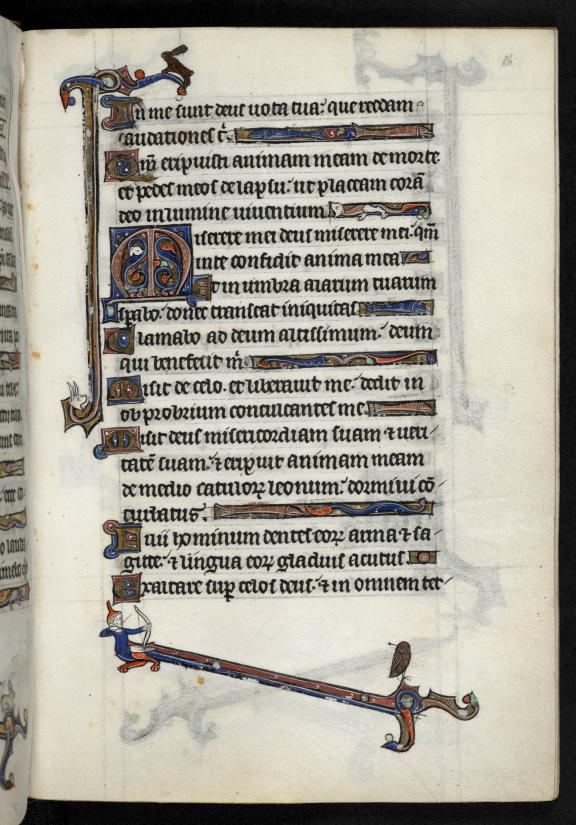 86
In me sunt deus uota tua: que reddam
laudationes t̄.
Qm̄ eripuisti animam meam de morte
et pedes meos de lapsu: ut placeam corā
deo in lumine uiuentium.
Miserere mei deus miserere mei: qm̄
in te confidit anima mea
Et in umbra alarum tuarum
spabo: donec transeat iniquitas.
Clamabo ad deum altissimum: deum
qui benefecit m̄.
Misit de celo. et liberauit me: dedit in
obprobrium conculcantes me.
Misit deus misericordiam suam ⁊ ueri-
tatē suam: ⁊ eripuit animam meam
de medio catuloꝝ leonum: dormiui cō-
turbatus.
Filii hominum dentes eoꝝ arma ⁊ sa-
gitte: ⁊ lingua eoꝝ gladius acutus.
Exaltare sup̱ celos deus: ⁊ in omnem ter-